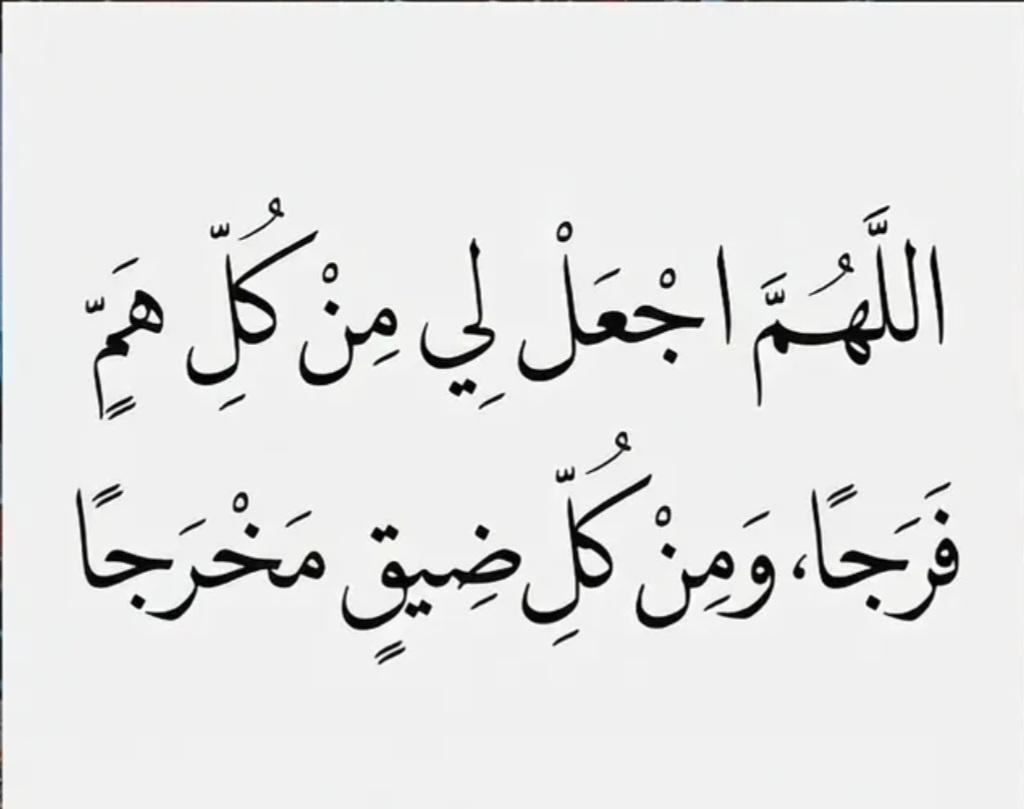 اللَّهُمَّ اجْعَلْ لِي مِنْ كُلِّ هَمٍّ
فَرَجًا، وَمِنْ كُلِّ ضِيقٍ مَخْرَجًا